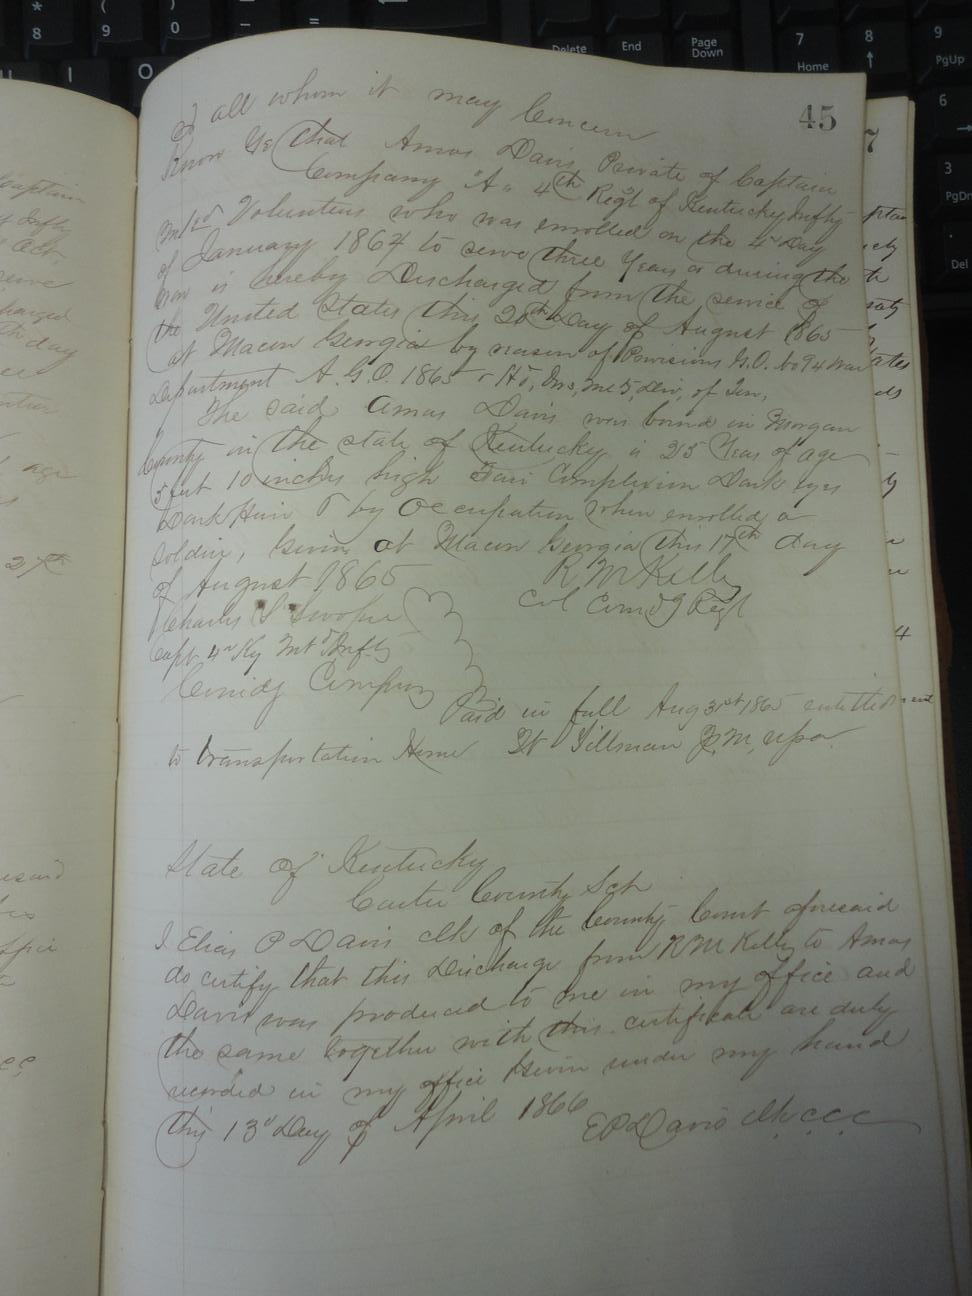 45
To all whom it may Concern
Know Ye that Amos Davis Private of Captain
Company "A" 4th Regt of Kentucky Infty
Mtd Volunteers who was enrolled on the 4th Day
of January 1864 to serve three Years or during the
war is hereby Discharged from the service of
the United States this 20th Day of August 1865
at Macon Georgia by reason of Provisions G.O. No 94 War
Department A.G.O. 1865
The said Amos Davis was born in Morgan
County in the state of Kentucky is 25 Years of age
5 feet 10 inches high Fair Complexion Dark eyes
Dark Hair & by Occupation when enrolled a
soldier, Given at Macon Georgia this 17th day
of August 1865 R M Kelly
Charles Col Comdg Regt
Capt 4th Ky Mtd Infty
Comdg Company
Paid in full Aug 31st 1865 entitled
to transportation Home Tillman P.M, USA
State of Kentucky
Carter County Sct
I Elias P Davis clk of the County Court aforesaid
do certify that this Discharge from R M Kelly to Amos
Davis was produced to me in my office and
the same together with this certificate are duly
recorded in my office Given under my hand
this 13th Day of April 1866 E P Davis clk c.c.c.